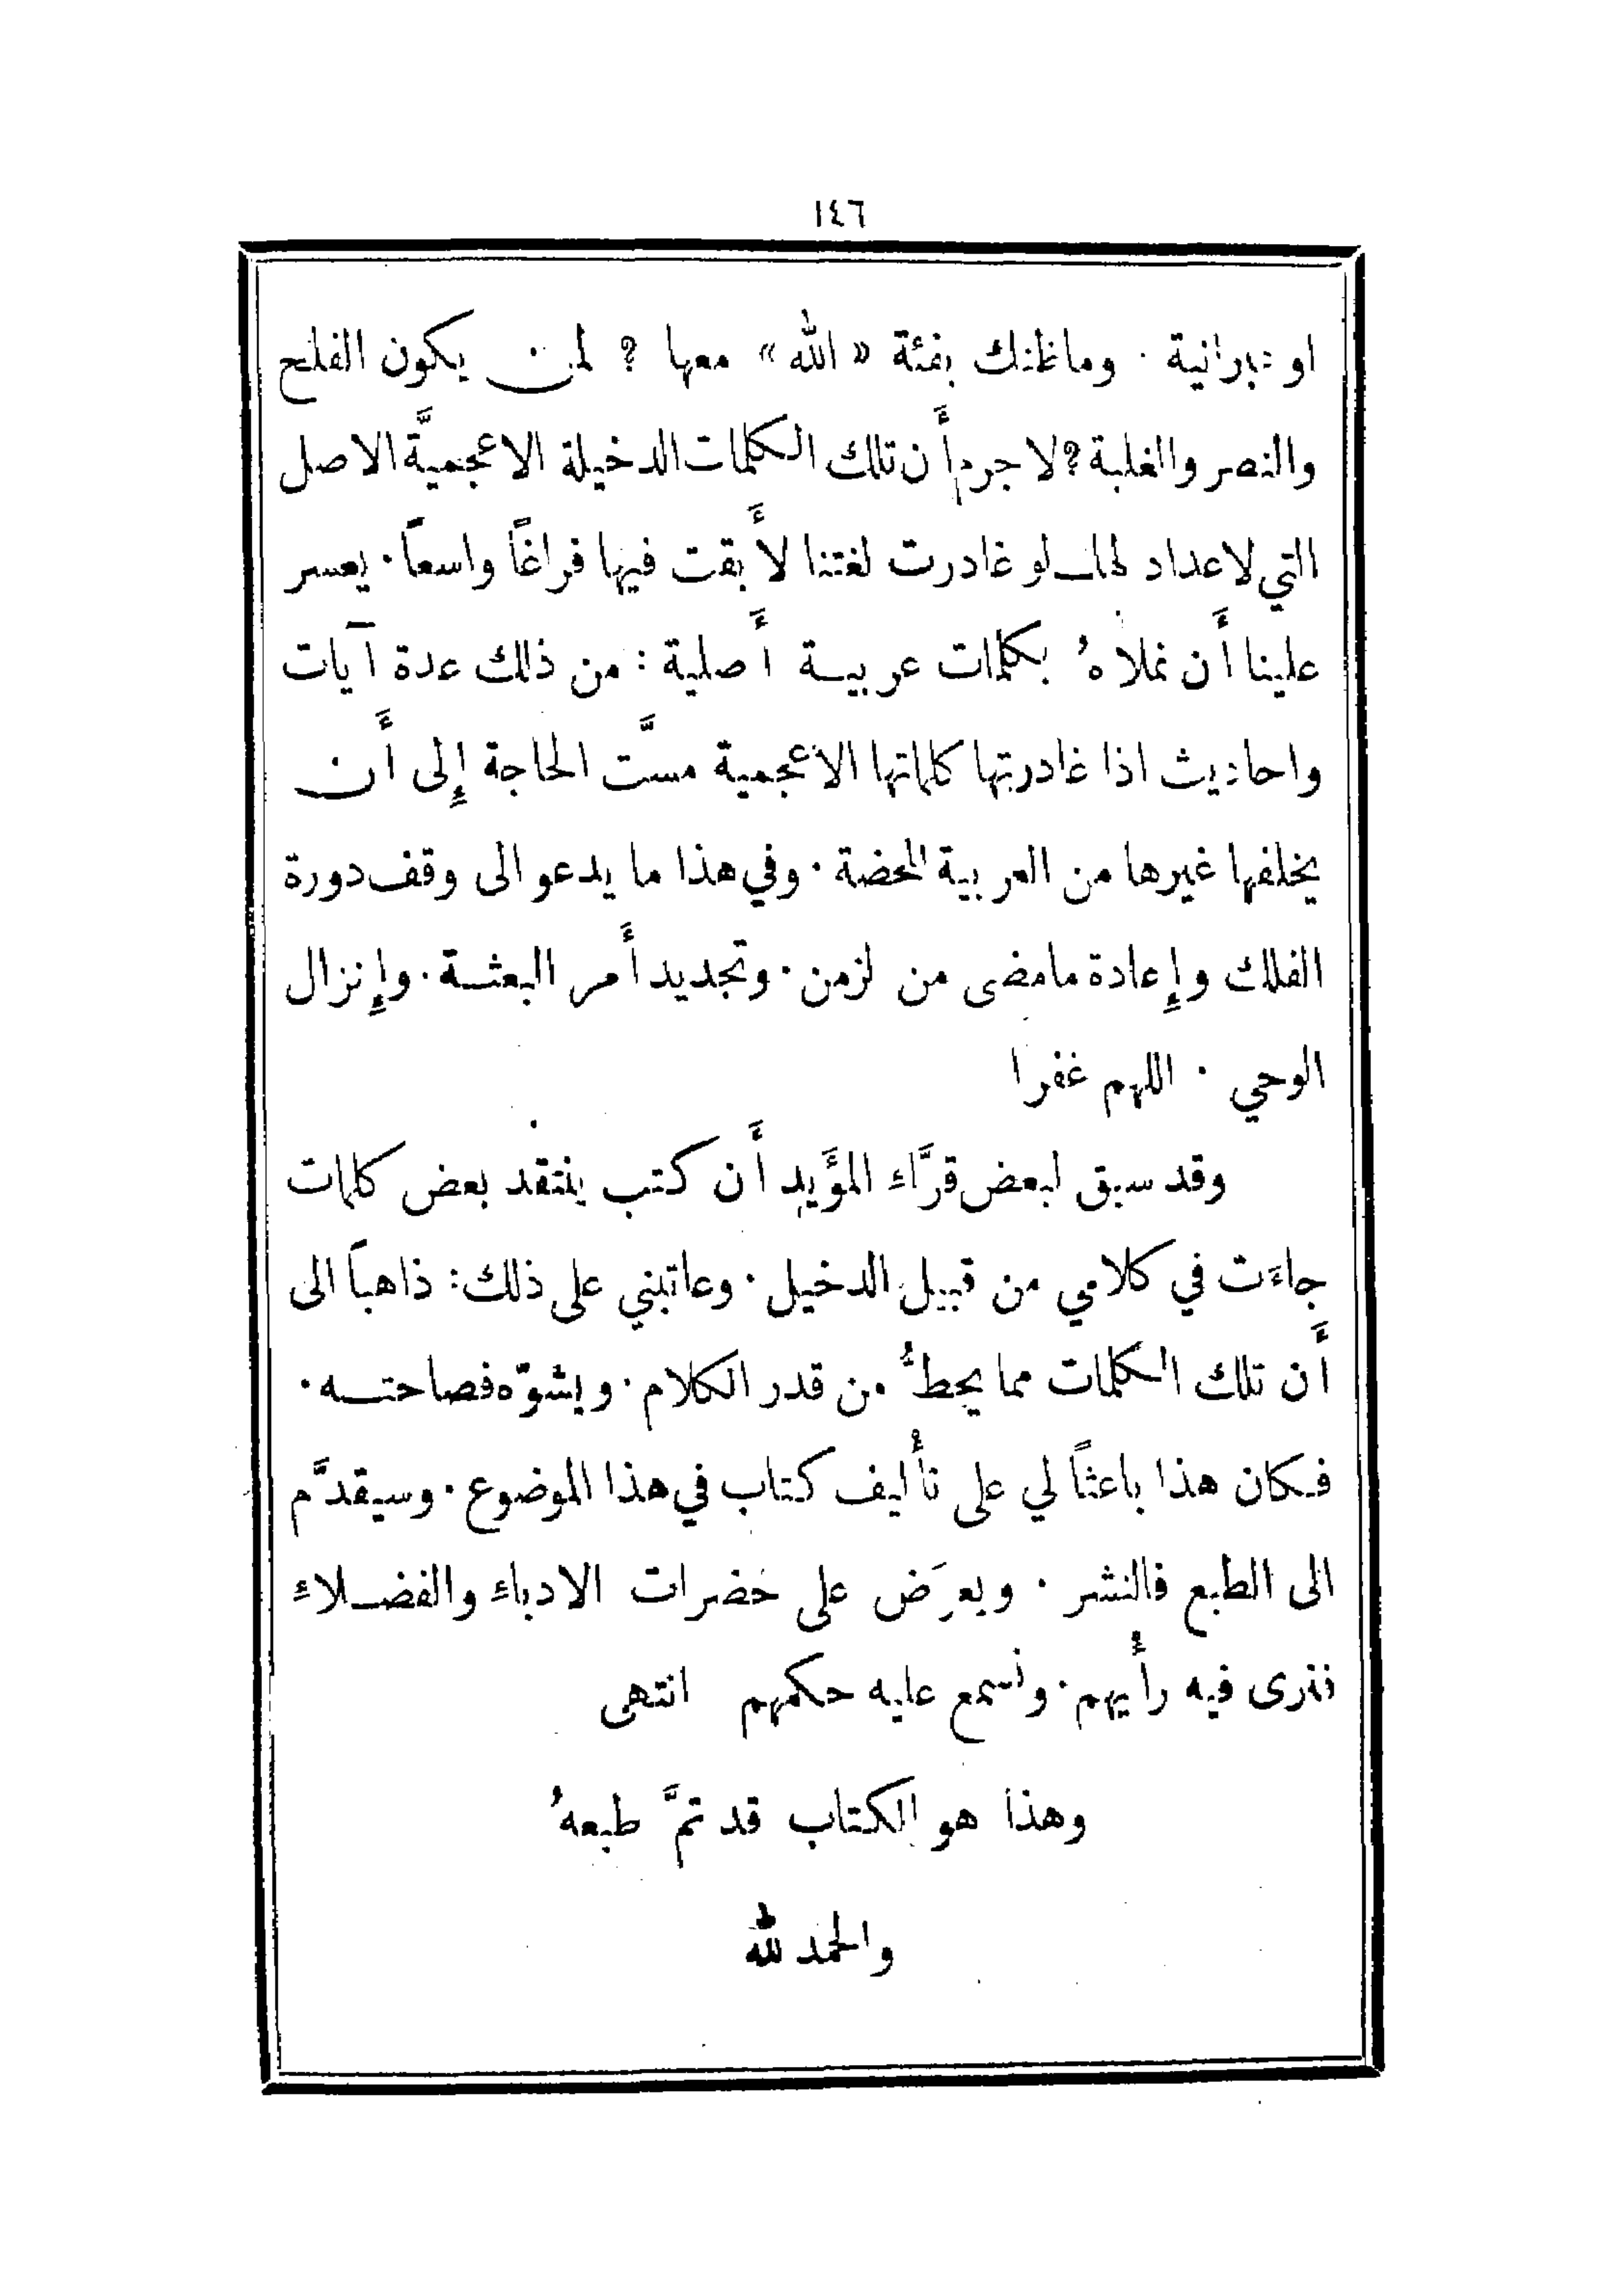 ١٤٦
او عبرانية . وماظنك بفئة « الله » معها ? لمن يكون الفلج
والنصر والغلبة ? لا جرم أَن تلك الكلمات الدخيلة الاعجميَّة الاصل
التي لاعداد لها لو غادرت لغتنا لأَبقت فيها فراغاً واسعاً . يعسر
علينا أَن نملاهُ بكلمات عربية أَصلية : من ذلك عدة آيات
واحاديث اذا غادرتها كلماتها الاعجمية مسَّت الحاجة إِلى أَن
يخلفها غيرها من العربية المحضة . وفي هذا ما يدعو الى وقف دورة
الفلك وإِعادة مامضى من لزمن . وتجديد أَمر البعثة . وإِنزال
الوحي . اللهم غفرا
وقد سبق لبعض قرَّاء المؤَيد أَن كتب ينتقد بعض كلمات
جاءَت في كلامي من قبيل الدخيل . وعاتبني على ذلك : ذاهباً الى
أَن تلك الكلمات مما يحطُّ من قدر الكلام . ويشوّه فصاحته .
فكان هذا باعثاً لي على تأْليف كتاب في هذا الموضوع . وسيقدَّم
الى الطبع فالنشر . ويعرَض على حضرات الادباء والفضلاء
فنرى فيه رأْيهم . ونسمع عليه حكمهم انتهى
وهذا هو الكتاب قد تمَّ طبعهُ
والحمد لله